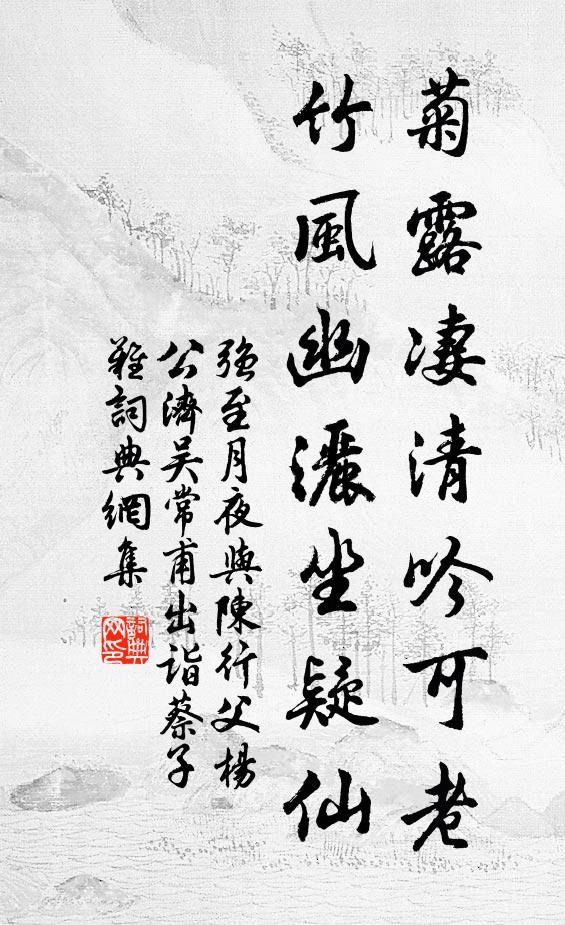 菊露凄清吟可老
竹風幽灑坐疑仙
強至月夜與陳行父楊
公濟吴常甫出詣蔡子
難詞典網集
詞典
网印